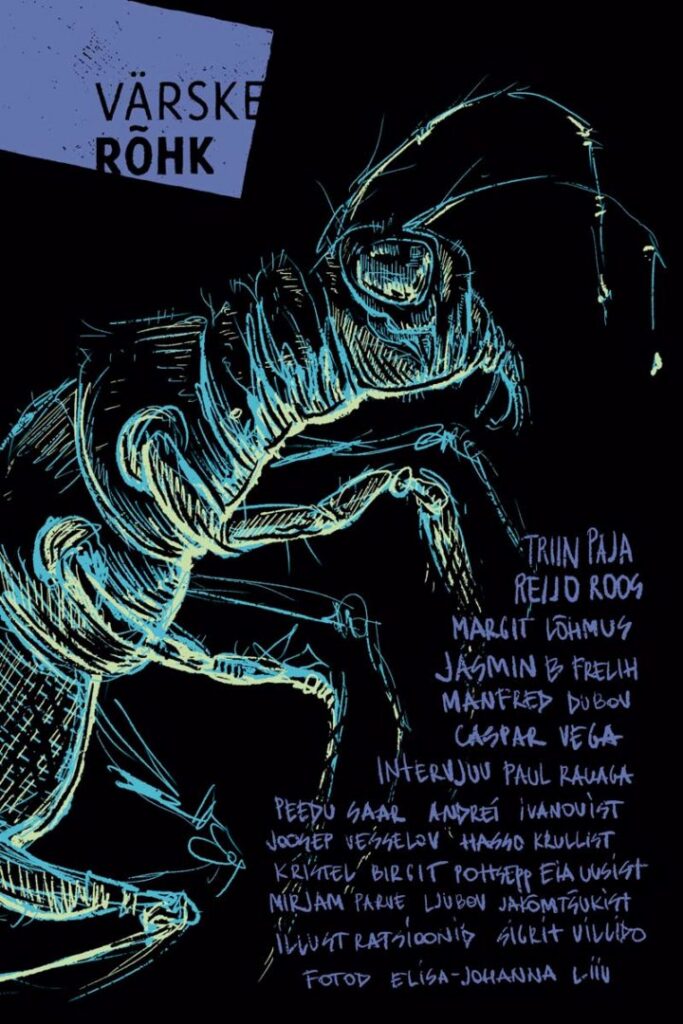 VÄRSKE
RÕHK
TRIIN PAJA
REIJO ROOS
MARGIT LÕHMUS
JASMIN B FRELIH
MANFRED DUBOV
CASPAR VEGA
INTERVJUU PAUL RAUAGA
PEEDU SAAR ANDREI IVANOVIST
JOOSEP VESSELOV HASSO KRULLIST
KRISTEL BIRGIT POTISEPP EIA UUSIST
MIRJAM PARVE LJUBOV JAKÕMTŠUKIST
ILLUSTRATSIOONID SIGRIT VILLIDO
FOTOD ELISA-JOHANNA LIIV